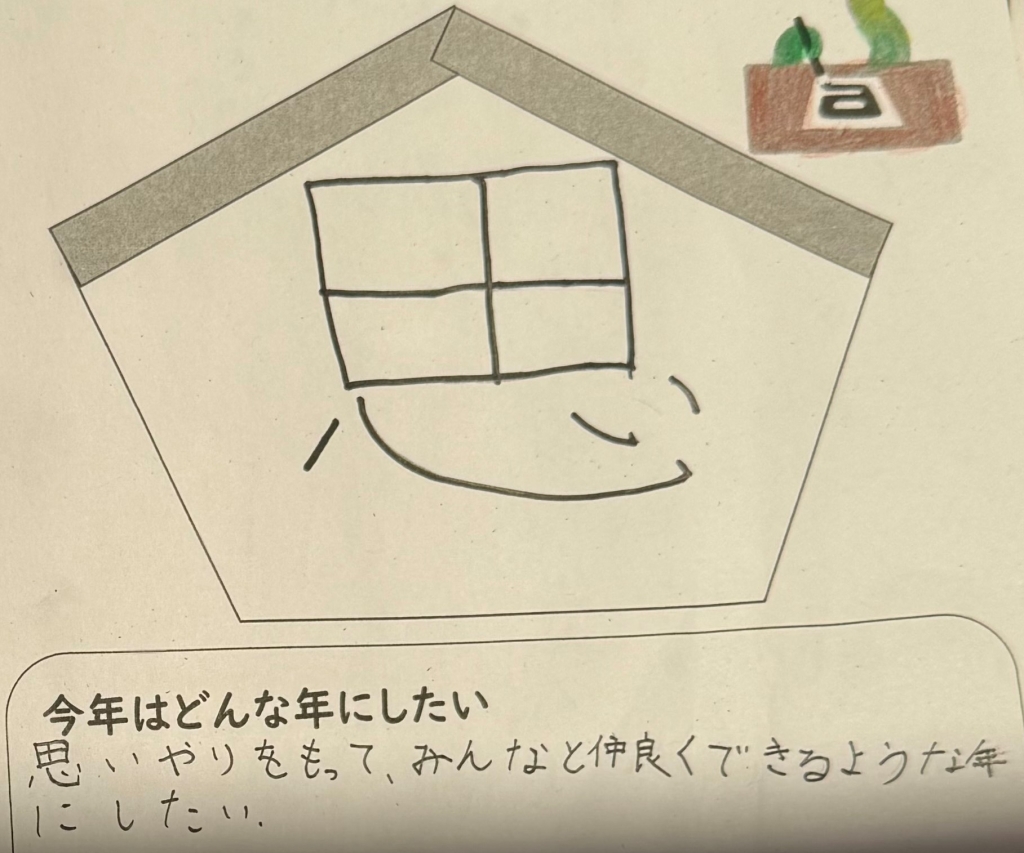 思
今年はどんな年にしたい
思いやりをもって、みんなと仲良くできるような年
にしたい.